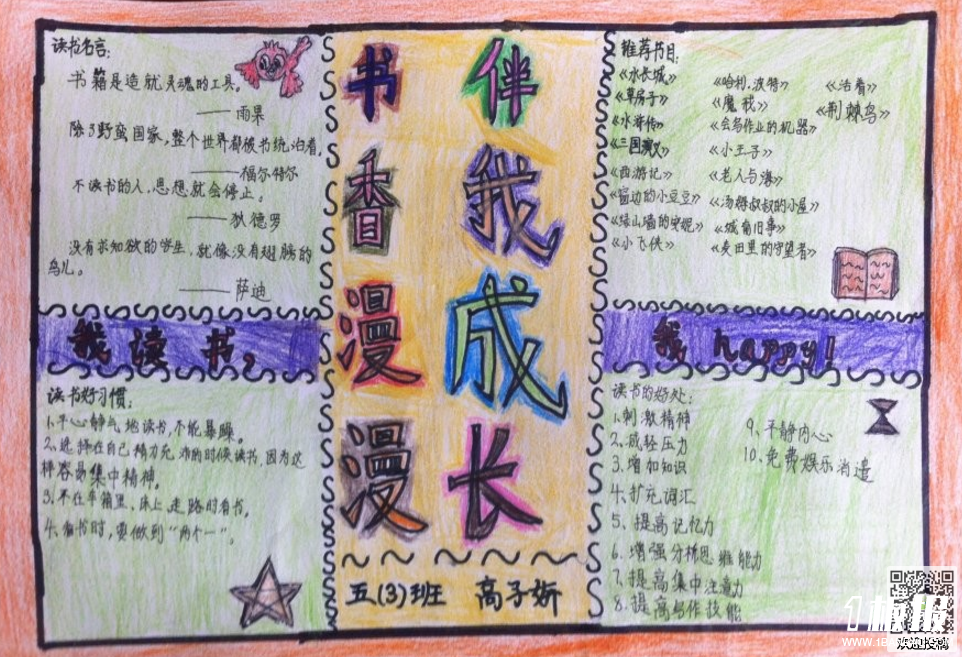 读书名言:
书籍是造就灵魂的工具。
——雨果
除了野蛮国家,整个世界都被书统治着。
——福尔特尔
不读书的人,思想就会停止。
——狄德罗
没有求知欲的学生,就像没有翅膀的
鸟儿。
——萨迪
我读书,
读书好习惯:
1、平心静气地读书,不能暴躁。
2、选择在自己精力充沛的时候读书,因为这
样容易集中精神。
3、不在车箱里、床上、走路时看书。
4、看书时,要做到“两个一”。
书香漫漫
伴我成长
五(3)班 高子妍
推荐书目:
《水长城》
《草房子》
《水浒传》
《三国演义》
《西游记》
《窗边的小豆豆》
《绿山墙的安妮》
《小飞侠》
《哈利.波特》
《魔戒》
《会写作业的机器》
《小王子》
《老人与海》
《汤姆叔叔的小屋》
《城南旧事》
《麦田里的守望者》
《活着》
《荆棘鸟》
我 happy!
读书的好处:
1、刺激精神
2、减轻压力
3、增加知识
4、扩充词汇
5、提高记忆力
6、增强分析思维能力
7、提高集中注意力
8、提高写作技能
9、平静内心
10、免费娱乐消遣
1板报
欢迎投稿